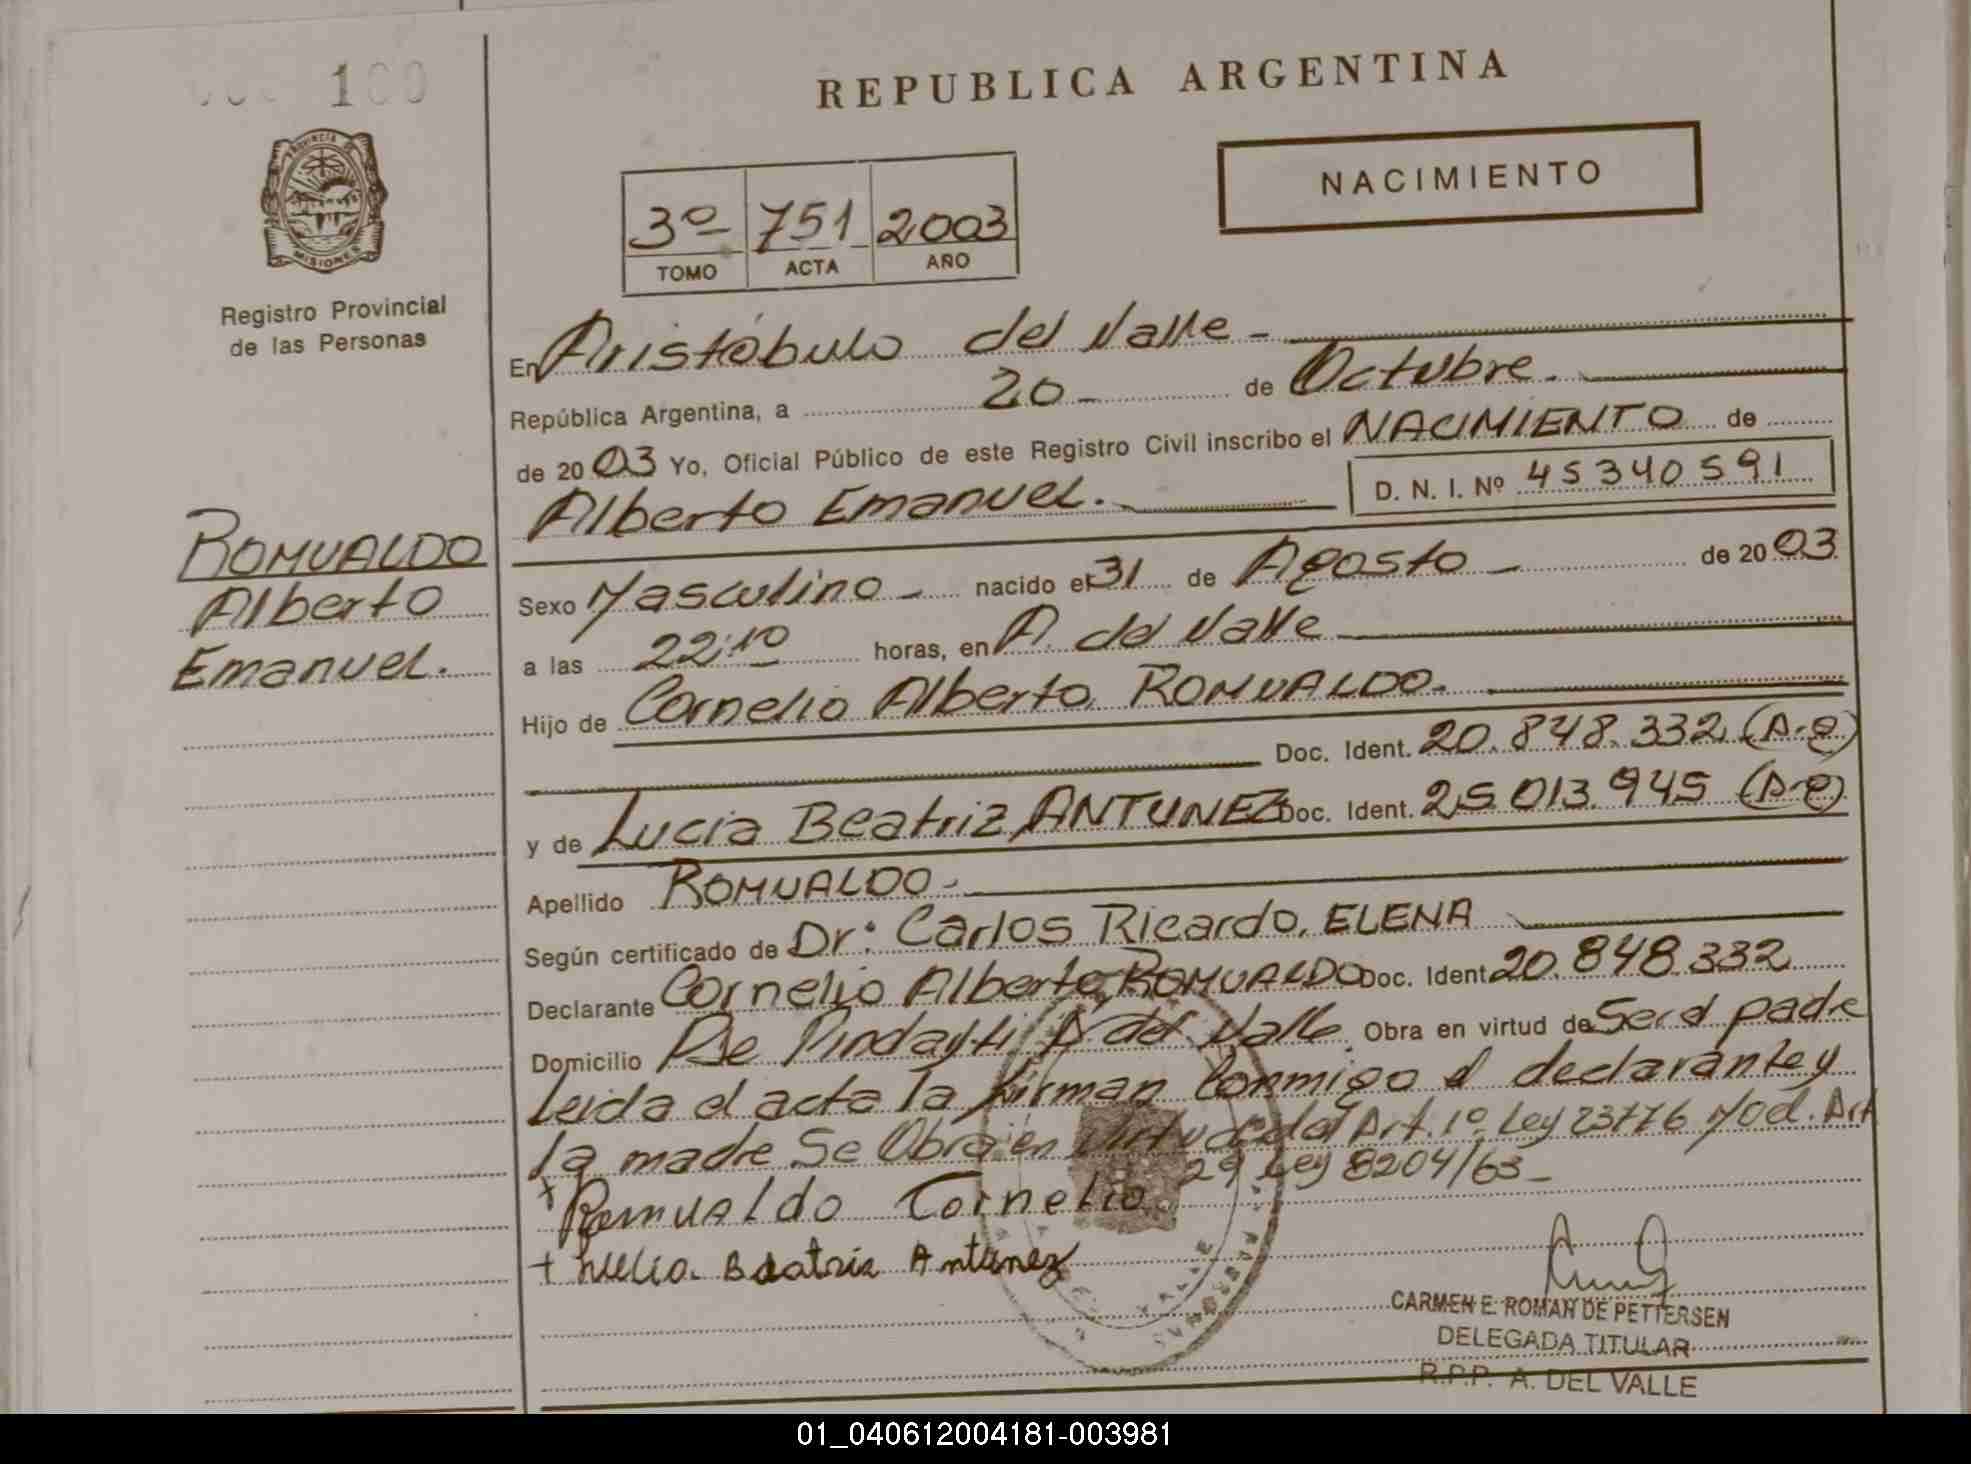 100
REPUBLICA ARGENTINA
PROVINCIA DE
MISIONES
NACIMIENTO
3º 751 2003
TOMO ACTA AÑO
Registro Provincial
de las Personas
En Aristóbulo del Valle -
República Argentina, a 20 - de Octubre.
de 2003 Yo, Oficial Público de este Registro Civil inscribo el NACIMIENTO de
Alberto Emanuel. D. N. I. Nº 45340591
ROMUALDO
Alberto
Emanuel.
Sexo Masculino - nacido el 31 de Agosto - de 2003
a las 22:10 horas, en A. del Valle
Hijo de Cornelio Alberto ROMUALDO.
Doc. Ident. 20.848.332 (A-e)
y de Lucia Beatriz ANTUNEZ Doc. Ident. 25.013.945 (A-e)
Apellido ROMUALDO -
Según certificado de Dr: Carlos Ricardo, ELENA
Declarante Cornelio Alberto, ROMUALDO Doc. Ident 20.848.332
Domicilio Pje Pindayti A. del Valle. Obra en virtud de Ser el padre
Leida el acta la firman Conmigo el declarante y
la madre Se Obra en virtud del Art. 1º Ley 23776 Mod. Art
29 Ley 8204/63 -
+ Romualdo Cornelio
+ Lucia Beatriz Antunez
CARMEN E. ROMAN DE PETTERSEN
DELEGADA TITULAR
R.P.P. A. DEL VALLE
01_040612004181-003981